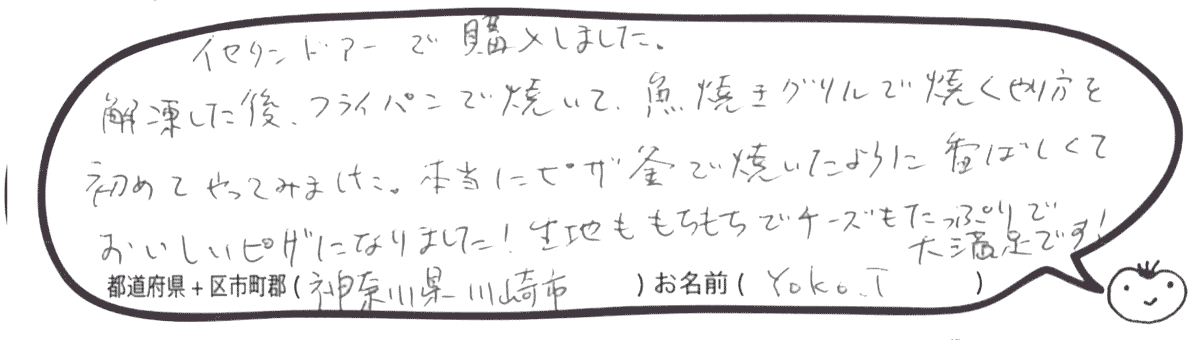 イセタンドアーで購入しました。
解凍した後、フライパンで焼いて、魚焼きグリルで焼くやり方を
初めてやってみました。本当にピザ釜で焼いたように香ばしくて
おいしいピザになりました!生地ももちもちでチーズもたっぷりで
大満足です!
都道府県+区市町郡(神奈川県川崎市)お名前(Yoko.T)